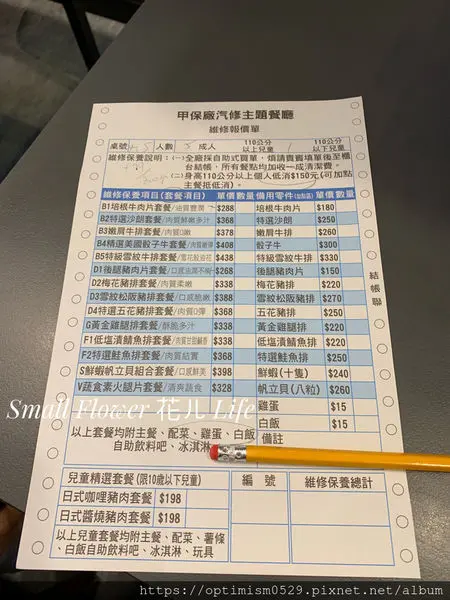 甲保廠汽修主題餐廳
維修報價單
桌號 人數 成人 110公分以上兒童 110公分以下兒童
維修保養說明：(一)全廠採自助式買單，煩請貴賓填單後至櫃
台結帳，所有餐點均加收一成清潔費。
(二)身高110公分以上個人低消$150元(可加點
主餐抵低消)。
維修保養項目(套餐項目) 單價 數量 備用零件 單價 數量
B1培根牛肉片套餐/油質豐潤 $288 培根牛肉片 $180
B2特選沙朗套餐/肉質鮮嫩多汁 $368 特選沙朗 $250
B3嫩肩牛排套餐/肉質Q嫩 $378 嫩肩牛排 $260
B4精選美國骰子牛套餐 $408 骰子牛 $300
B5特級雪紋牛排套餐 $438 特級雪紋牛排 $330
D1後腿豬肉片套餐 $268 後腿豬肉片 $150
D2梅花豬排套餐/肉質柔嫩 $338 梅花豬排 $220
D3雪紋松阪豬排套餐/口感脆嫩 $388 雪紋松阪豬排 $270
D4特選五花豬排套餐/肉質Q彈 $368 五花豬排 $250
G黃金雞腿排套餐/酥脆多汁 $338 黃金雞腿排 $220
F1低塩漬鯖魚排套餐 $338 低塩漬鯖魚排 $220
F2特選鮭魚排套餐/肉質結實 $368 特選鮭魚排 $250
S鮮蝦帆立貝組合套餐/口感鮮美 $398 鮮蝦(十隻) $240
V蔬食素火腿片套餐/清爽蔬食 $328 帆立貝(八粒) $260
雞蛋 $15
白飯 $15
以上套餐均附主餐、配菜、雞蛋、白飯
自助飲料吧、冰淇淋
備註
兒童精選套餐(限10歲以下兒童) 編號 維修保養總計
日式咖哩豬肉套餐 $198
日式醬燒豬肉套餐 $198
以上兒童套餐均附主餐、配菜、薯條
、白飯自助飲料吧、冰淇淋、玩具
結帳聯
Small Flower 花儿 Life
https://optimism0529.pixnet.net/album